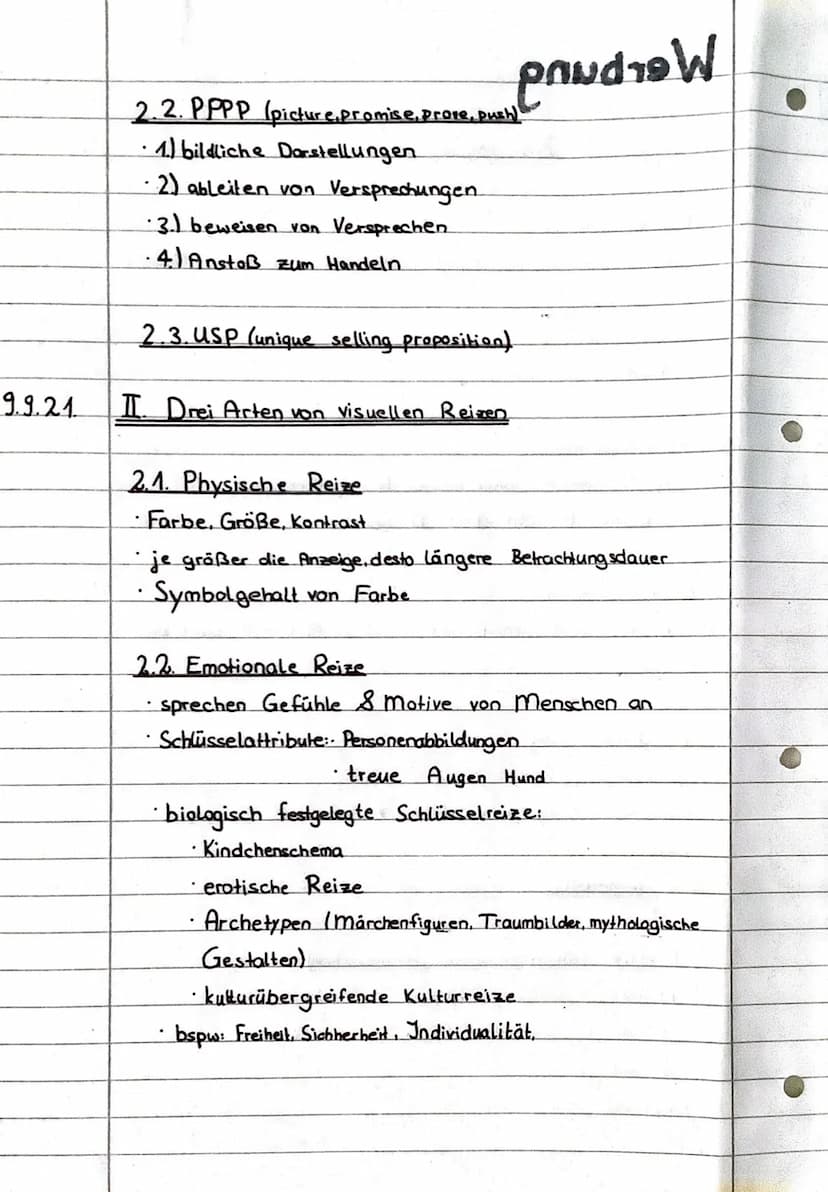 Werbung
2.2. PPPP (picture, promise, prove, push)
· 1.) bildliche Darstellungen
· 2) ableiten von Versprechungen
· 3.) beweisen von Versprechen
· 4.) Anstoß zum Handeln
2.3. USP (unique selling proposition)
9.9.21. II. Drei Arten von visuellen Reizen
2.1. Physische Reize
· Farbe, Größe, Kontrast
· je größer die Anzeige, desto längere Betrachtungsdauer
· Symbolgehalt von Farbe
2.2. Emotionale Reize
· sprechen Gefühle & Motive von Menschen an
· Schlüsselattribute: · Personenabbildungen
· treue Augen Hund
· biologisch festgelegte Schlüsselreize:
· Kindchenschema
· erotische Reize
· Archetypen (Märchenfiguren, Traumbilder, mythologische
Gestalten)
· kulturübergreifende Kulturreize
· bspw: Freiheit, Sichherheit, Individualität,